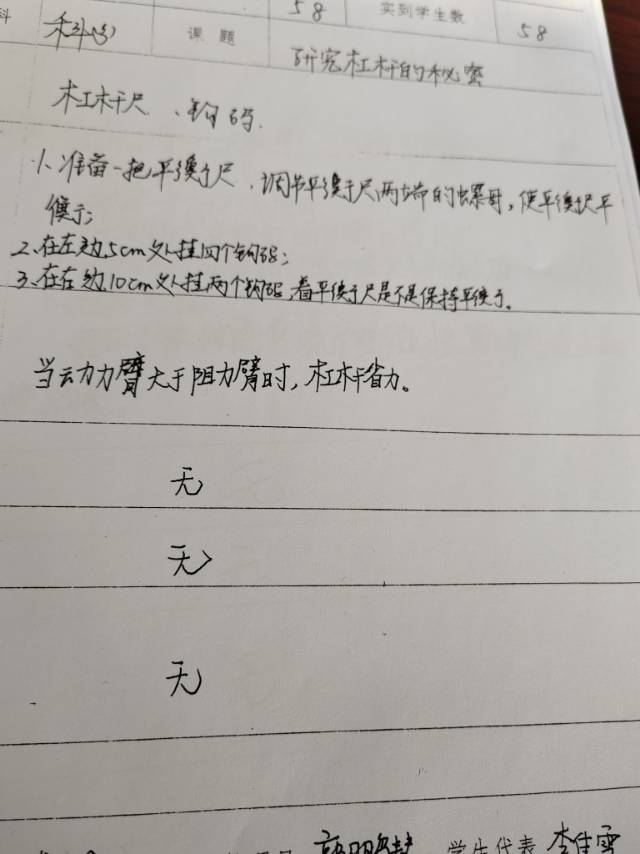 科
58
实到学生数
58
科学(3)
课题
研究杠杆的秘密
杠杆尺、钩码.
1、准备一把平衡尺,调节平衡尺两端的螺母,使平衡尺平
衡;
2、在左边5cm处挂四个钩码;
3、在右边10cm处挂两个钩码,看平衡尺是不是保持平衡。
当动力臂大于阻力臂时,杠杆省力。
无
无
无
学生代表 李佳雪